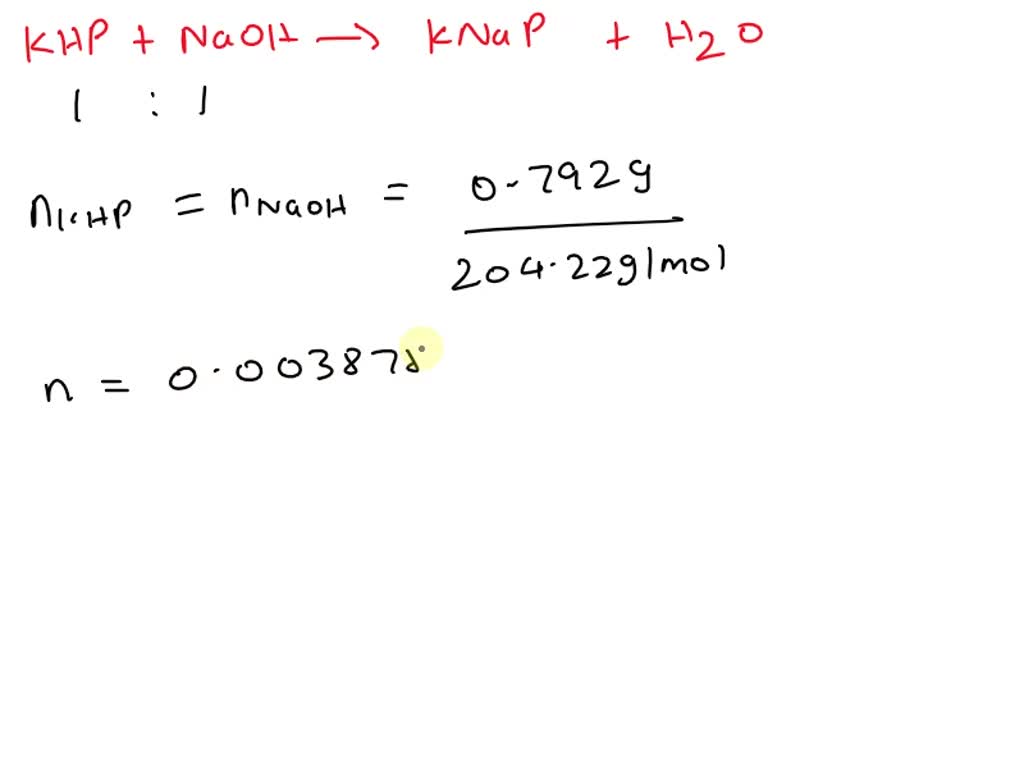 KHP + NaOH → KNaP + H2O
1 : 1
nKHP = nNaOH = 0.792g
204.22g/mol
n = 0.003878